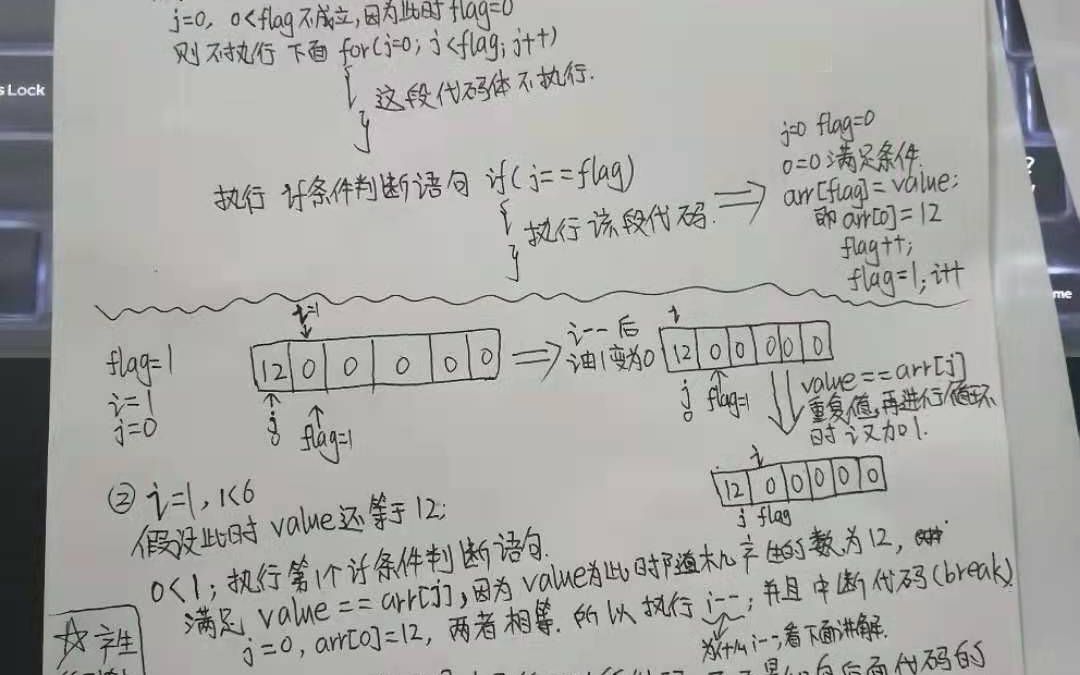 s Lock
j=0, 0<flag不成立,因为此时flag=0
则不执行 下面 for(j=0; j<flag; j++)
{
这段代码体不执行.
}
执行 if条件判断语句 if(j==flag)
{
执行该段代码.
}
j=0 flag=0
0=0满足条件.
arr[flag]=value;
即arr[0]=12
flag++;
flag=1; i++
?
me
flag=1
i=1
j=0
i=1
12 0 0 0 0 0
j
0
flag=1
i--后
i由1变为0
i
12 0 0 0 0 0
j
0
flag=1
value==arr[j]
重复值,再进行循环
时i又加1.
i
12 0 0 0 0 0
j flag
② i=1, 1<6
假设此时value还等于12;
0<1; 执行第1个if条件判断语句.
满足 value==arr[j],因为value为此时随机产生的数为12,
j=0, arr[0]=12, 两者相等. 所以执行i--; 并且中断代码(break).
为什么i--;看下面讲解.
☆产生
后面代码的